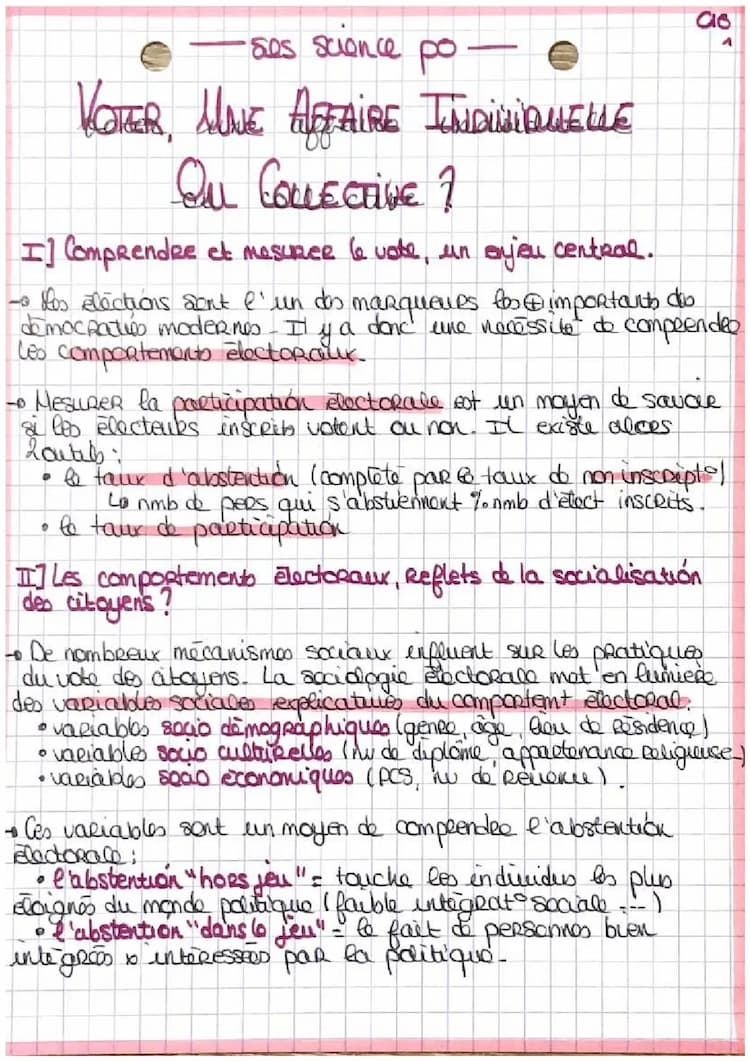 C18
1
— SES science po —
VOTER, UNE AFFAIRE INDIVIDUELLE
OU COLLECTIVE ?
I] Comprendre et mesurer le vote, un enjeu central.
→ Les élections sont l'un des marqueurs les ⊕ importants des
démocraties modernes. Il y a donc une nécessité de comprendre
les comportements électoraux.
→ Mesurer la participation électorale est un moyen de savoir
si les électeurs inscrits votent ou non. Il existe alors
2 outils :
• le taux d'abstention (complété par le taux de non inscript°)
↳ nmb de pers qui s'abstiennent % nmb d'élect inscrits.
• le taux de participation
II] Les comportements électoraux, reflets de la socialisation
des citoyens ?
→ De nombreux mécanismes sociaux influent sur les pratiques
du vote des citoyens. La sociologie électorale met en lumière
des variables sociales explicatives du comportemt électoral.
• variables socio démographiques (genre, âge, lieu de résidence)
• variables socio culturelles (nv de diplôme, appartenance religieuse)
• variables socio économiques (PCS, nv de revenu).
→ Ces variables sont un moyen de comprendre l'abstention
électorale :
• l'abstention "hors jeu" = touche les individus les plus
éloignés du monde politique (faible intégrat° sociale ...)
• l'abstention "dans le jeu" = le fait de personnes bien
intégrées & intéressées par la politique.